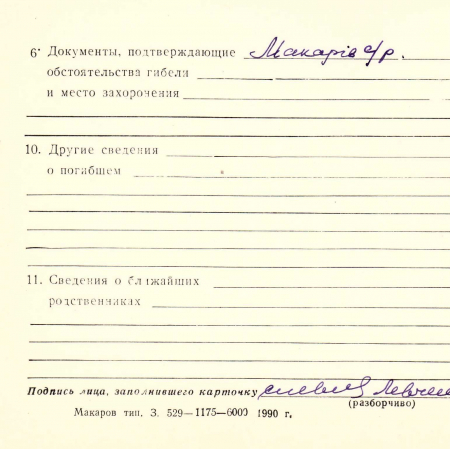 6· Документы, подтверждающие Макарів с/р.
обстоятельства гибели
и место захоронения
10. Другие сведения
о погибшем
11. Сведения о ближайших
родственниках
Подпись лица, заполнившего карточку
(разборчиво)
Макаров тип. З. 529—1175—6000 1990 г.